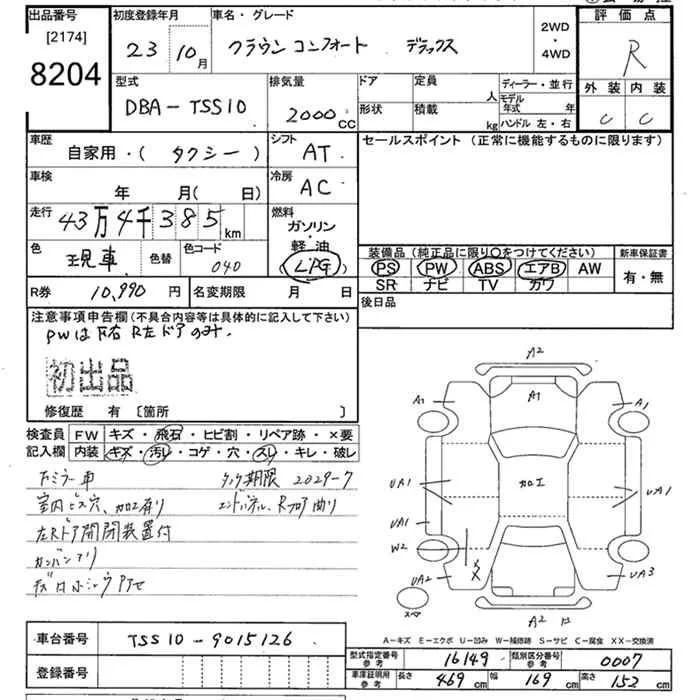 出品番号
[2174]
8204
初度登録年月
23 10月
車名・グレード
クラウン コンフォート デラックス
2WD
・
4WD
評価点
R
外装 内装
C C
型式
DBA-TSS10
排気量
2000cc
ドア
形状
定員 人
積載 kg
ディーラー・並行
モデル年式 年
ハンドル 左・右
車歴
自家用・( タクシー )
シフト
AT
セールスポイント (正常に機能するものに限ります)
車検
年 月( 日)
冷房
AC
走行
43万4千385km
燃料
ガソリン
・
軽油
(LPG)
色
現車
色替
色コード
040
装備品 (純正品に限り○をつけてください)
PS PW ABS エアB AW
SR ナビ TV カワ
新車保証書
有・無
R券 10,990 円
名変期限 月 日
後日品
注意事項申告欄(不具合内容等は具体的に記入して下さい)
PWは 左ドアのみ.
初出品
修復歴 有 〔箇所 〕
検査員
記入欄
FW キズ・飛石・ヒビ割・リペア跡・×要
内装 キズ・汚レ・コゲ・穴・スレ・キレ・破レ
ミラー車
タンク期限 2029-7
室内ビス穴、加工有り
エンドパネル、Rフロア曲り
左Rドア開閉装置付
A2
A1
A1
A1
UA1
加工
UA1
UA1
W2
UA2
UA3
スペア
A2
A-キズ E-エクボ U-凹み W-補修跡 S-サビ C-腐食 XX-交換済
車台番号
TSS10-9015126
登録番号
型式指定番号
参考
16149
類別区分番号
参考
0007
車庫証明用
参考
長さ 469cm
幅 169cm
高さ 152cm